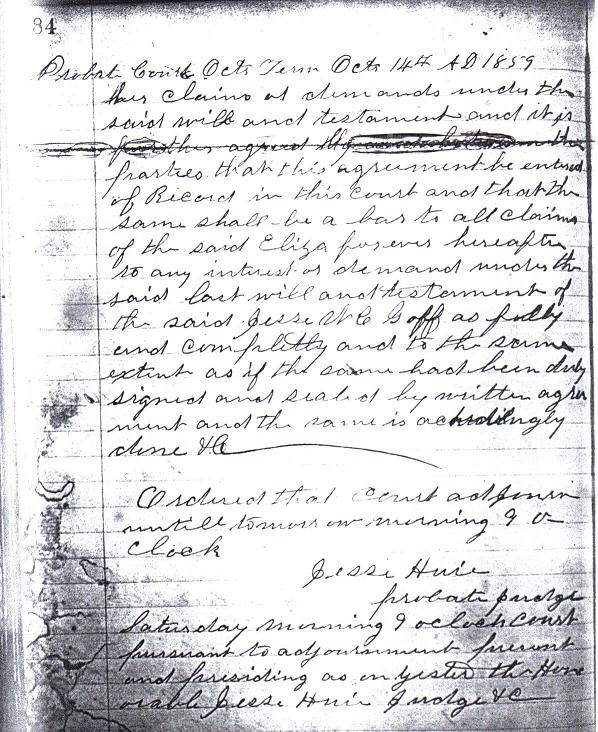 84
Probate Court Octr Term Octr 14th AD 1859
her claims or demands under the
said will and testament and it is
further agreed by the
parties that this agreement be entered
of Record in this court and that the
same shall be a bar to all claims
of the said Eliza forever hereafter
to any interest or demand under the
said last will and testament of
the said Jesse W C Goff as fully
and completly and to the same
extent as if the same had been duly
signed and sealed by written agree
ment and the same is acordingly
done &C
Ordered that court adjourn
untill tomorrow morning 9 o
clock
Jesse Huie
probate judge
Saturday morning 9 oclock court
pursuant to adjournment present
and presiding as on yester the Hon
orable Jesse Huie Judge &C